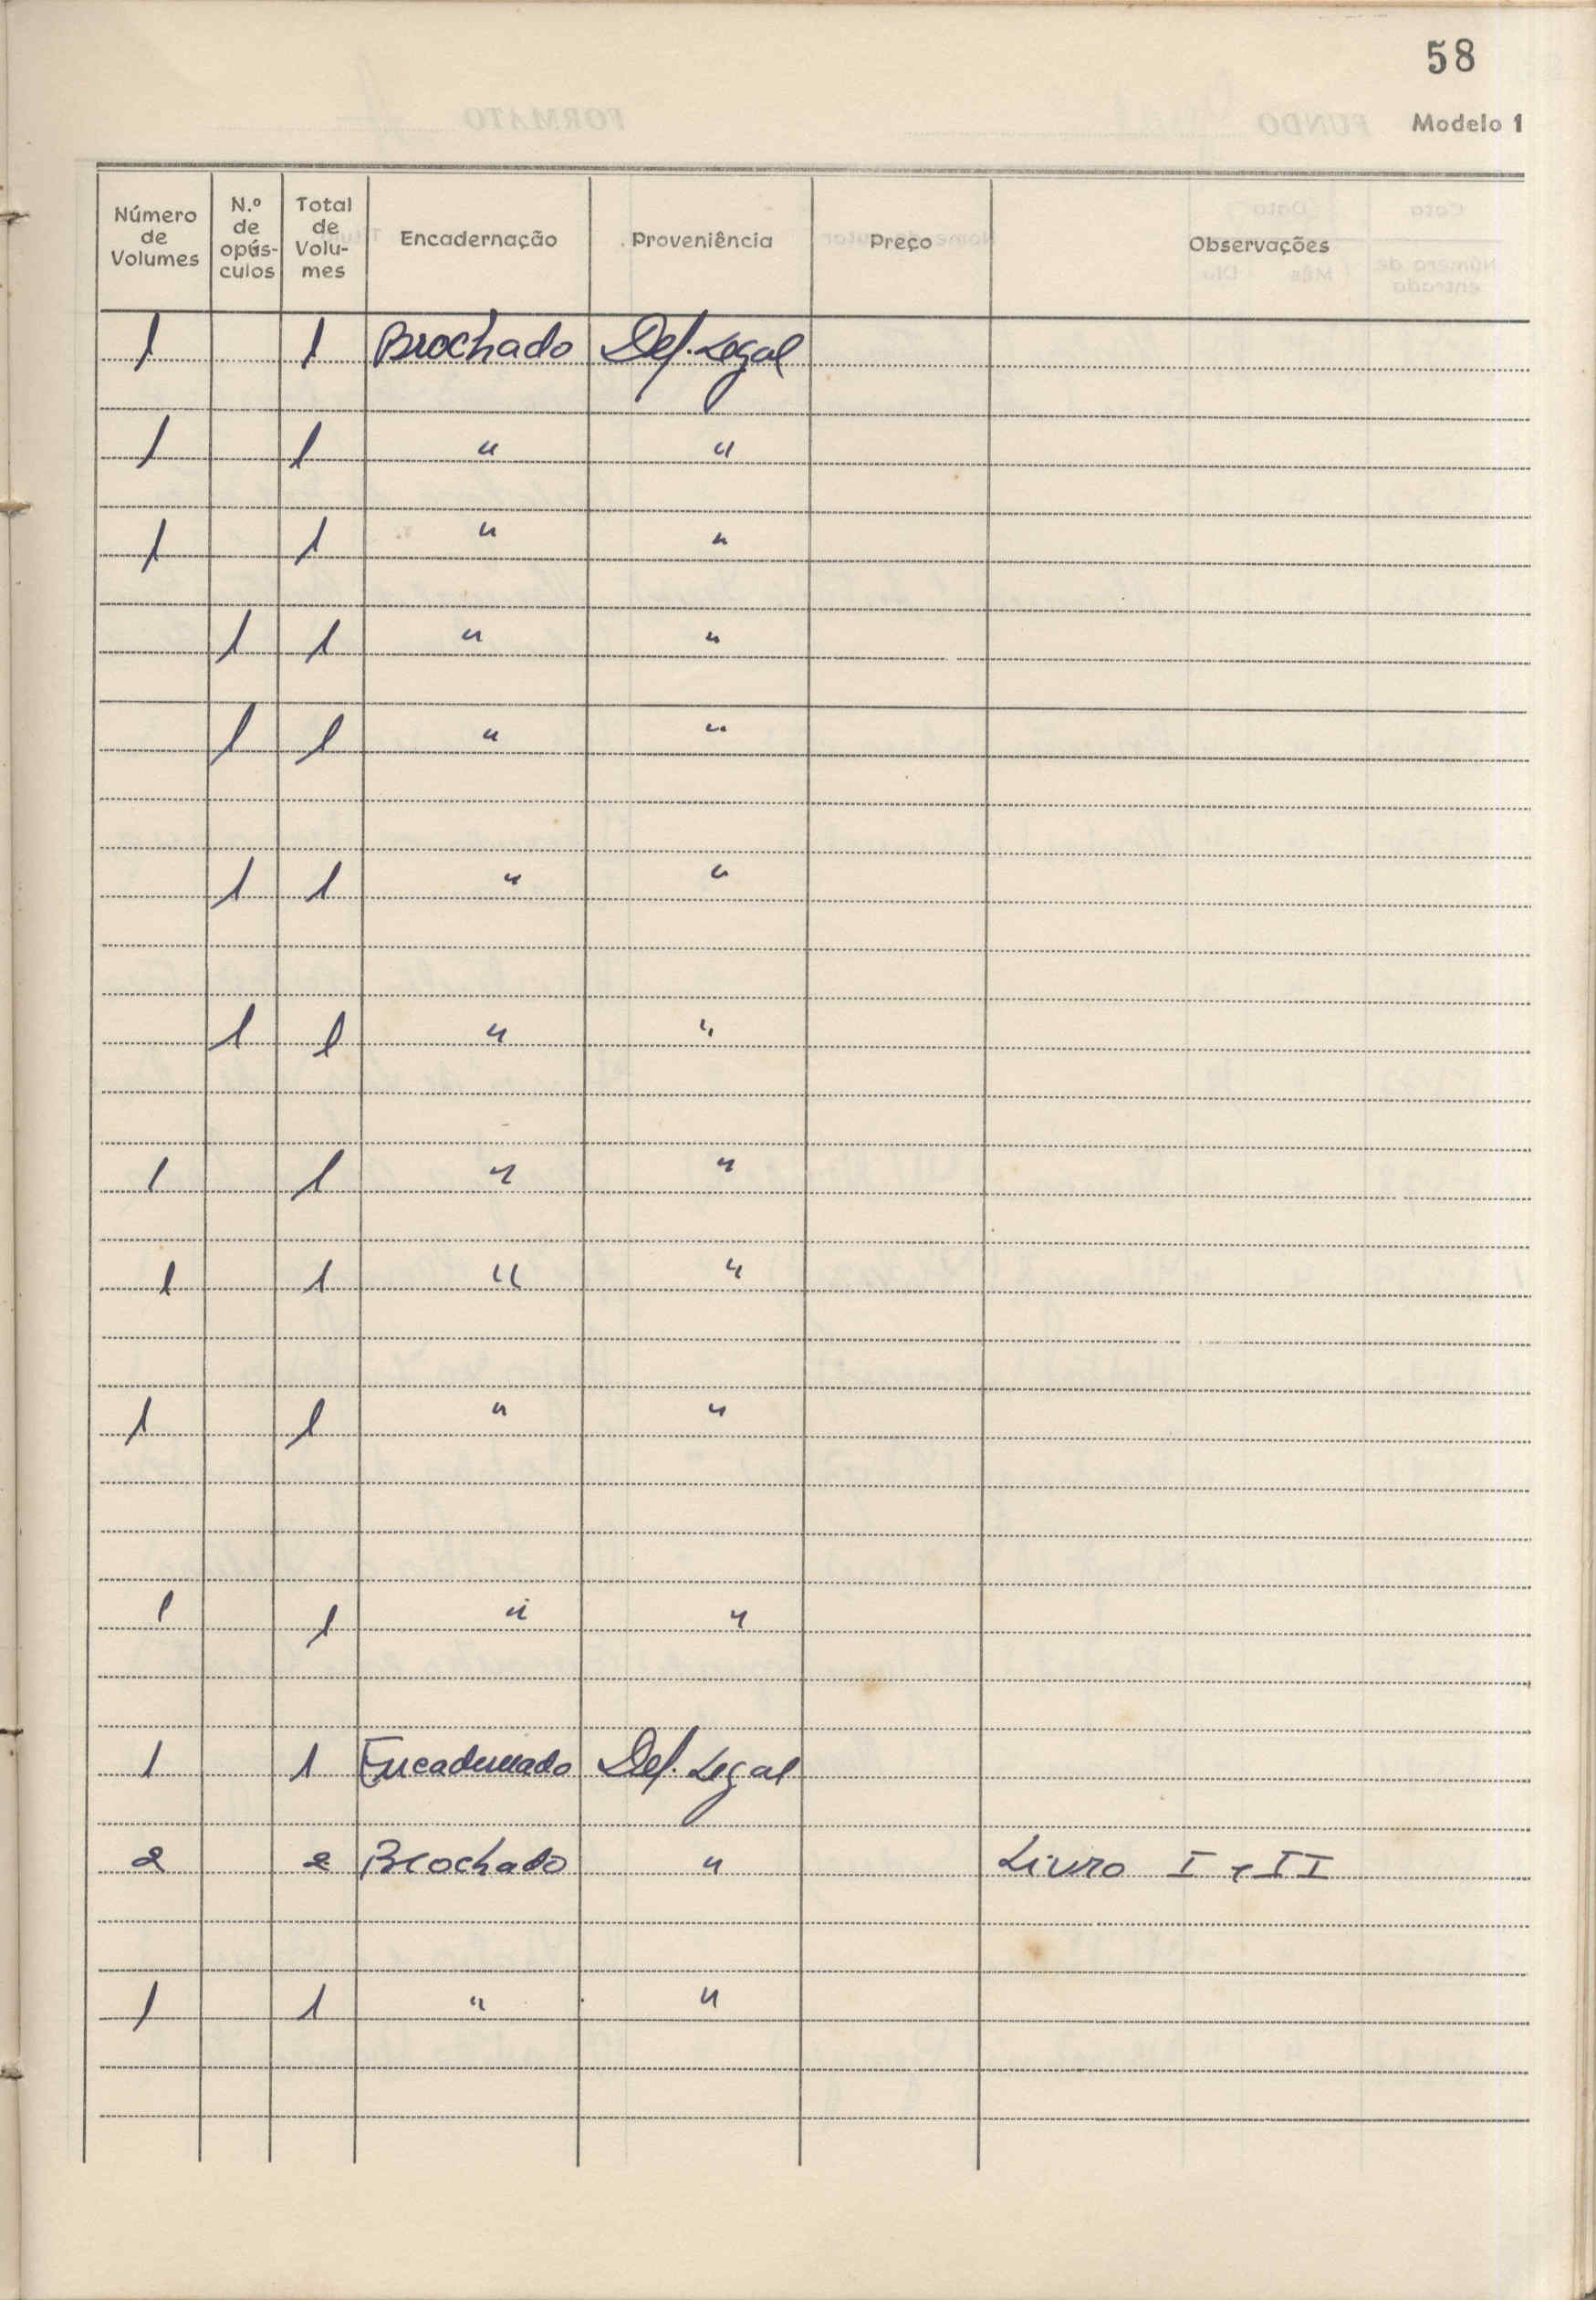 58
Modelo 1
Número de Volumes N.º de opús-culos Total de Volu-mes Encadernação Proveniência Preço Observações
1 1 Brochado Dep. Legal
1 1 " "
1 1 " "
1 1 " "
1 1 " "
1 1 " "
1 1 " "
1 1 " "
1 1 " "
1 1 " "
1 1 " "
1 1 Encadernado Dep. Legal
2 2 Brochado " Livro I e II
1 1 " "